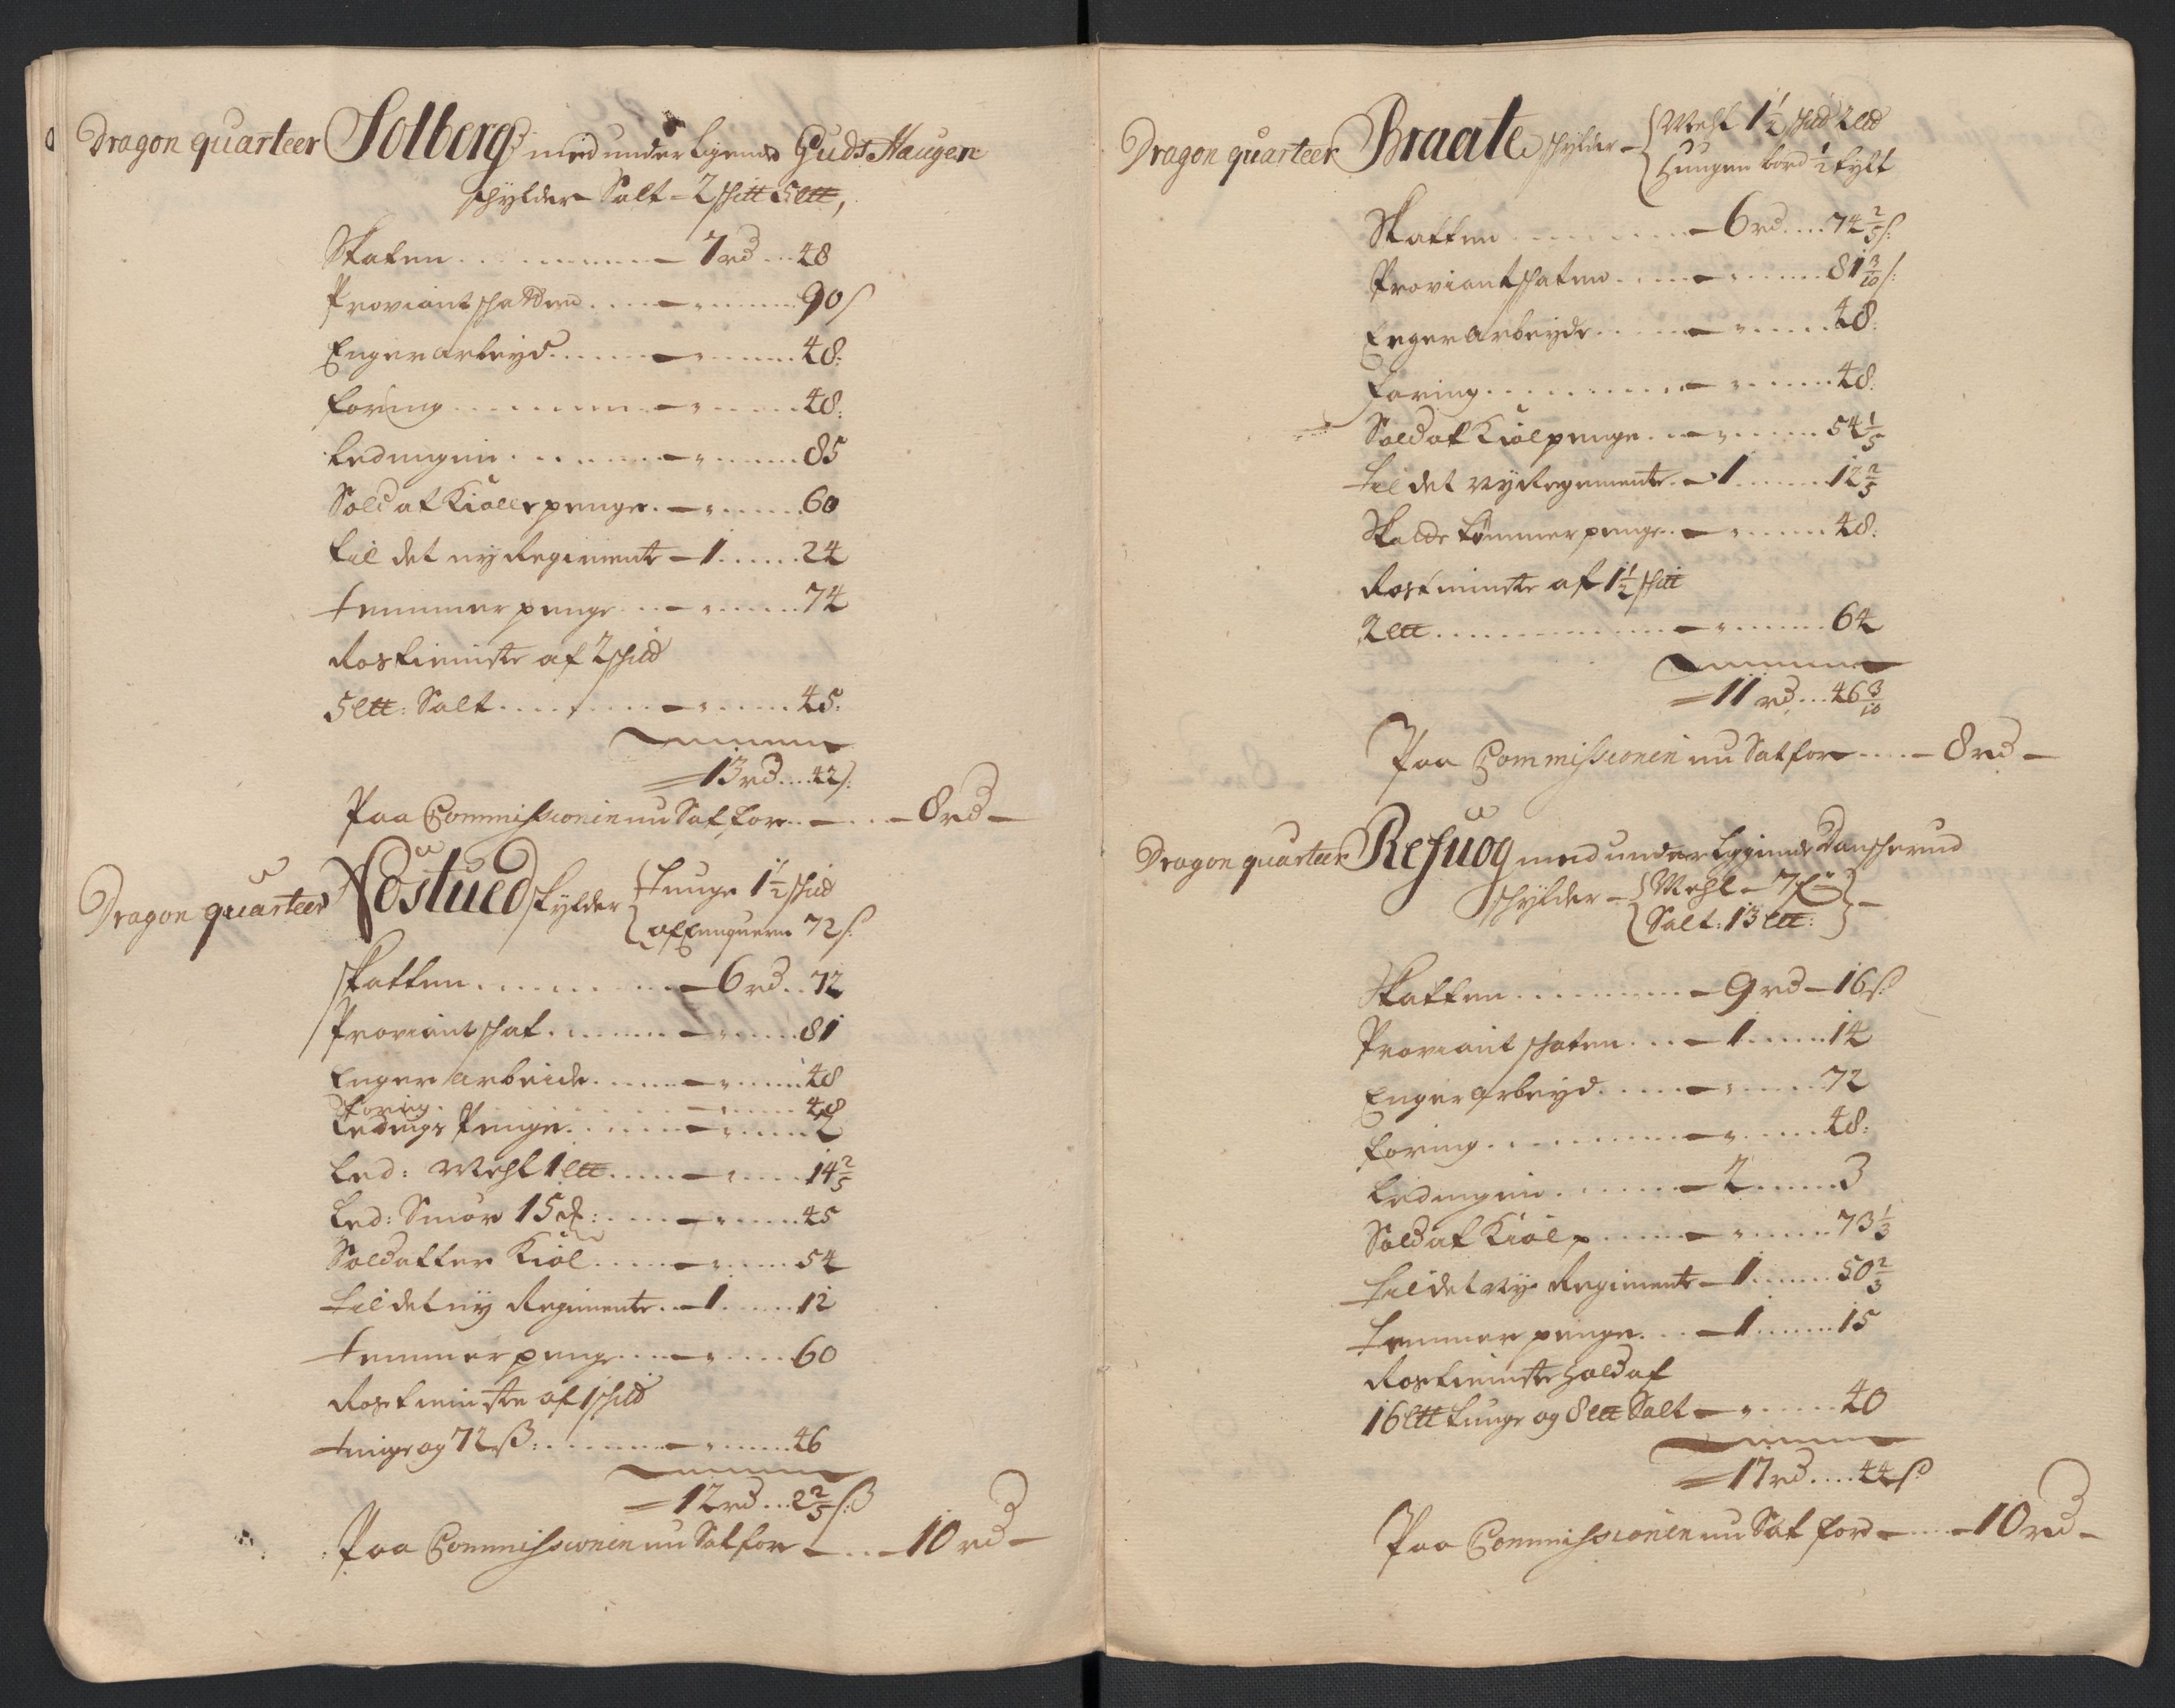 Dragon quarteer Solberg med underligende Guds Haugen
schylder Salt - 2 schitt 5 ltt,
Skaten - 7 rd 48
Proviantschatten - " 90 s
Enger arbeyd - " 48:
foring - " 48:
Ledingen - " 85
Soldat Kiolle penge - " 60
til det ny Regimente - 1 24
temmer penge - " 74
Rostieniste af 2 schid
5 ltt: Salt - " 45:
= 13 rd 42 s:
Paa Commissionen nu Sat for - 8 rd -
Dragon quarteer Nöstued skylder { tunge 1½ schid
af Engquern 72 s:
skatten - 6 rd 72
Proviantschat - " 81
Enger arbeide - " 48
foring - " 48
Ledings Penge - " 2
Led: Mehl 1 ltt - " 14 2/5
Led: Smör 15 : - " 45
Soldatter Kiol - " 54
til det ny Regimente - 1 12
temmer penge - " 60
Rostieniste af 1 schid
tunge og 72 ß: - " 46
= 12 rd 2 2/5 ß
Paa Commissionen nu Sat for - 10 rd -
Dragon quarteer Braate schylder - { Mehl 1½ schid 2 ltd
Hungen bord ½ tylt
Skatten - 6 rd 74 2/5 s:
Proviantschaten - " 81 3/10 s:
Enger arbeyde - " 48:
foring - " 48:
Soldat Kiolpenge - " 54 1/5
til det ny Regimente - 1 12 2/5
Skalde tømmer penge - " 48:
Rostieniste af 1½ schitt
2 ltt - " 64
= 11 rd 46 3/10
Paa Commissionen nu Sat for - 8 rd -
Dragon quarteer Refuog med underliggende Danscherud
schylder - { Mehl - 7 } -
{ Salt: 13 ltt: }
Skatten - 9 rd - 16 s:
Proviant schaten - 1 14
Enger arbeyd - " 72
foring - " 48:
Ledingen - 2 3
Soldat Kiol p - " 73 1/3
til det ny Regimente - 1 50 2/3
temmer penge - 1 15
Rostieniste hold af
16 ltt tunge og 8 ltt Salt - " 40
= 17 rd 44 s
Paa Commissionen nu Sat for - 10 rd -